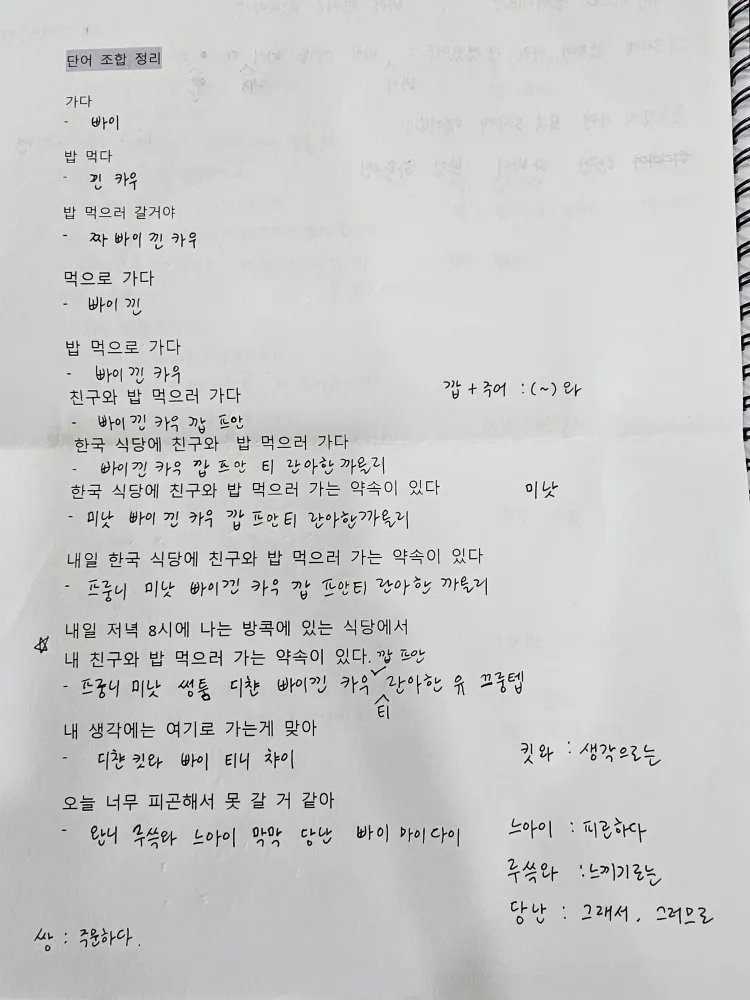 단어 조합 정리
가다
- 빠이
밥 먹다
- 낀 카우
밥 먹으러 갈거야
- 짜 빠이 낀 카우
먹으로 가다
- 빠이 낀
밥 먹으로 가다
- 빠이 낀 카우
친구와 밥 먹으러 가다
깝 + 주어 : (~) 와
- 빠이 낀 카우 깝 프안
한국 식당에 친구와 밥 먹으러 가다
- 빠이낀 카우 깝 프안 티 란아한 까올리
한국 식당에 친구와 밥 먹으러 가는 약속이 있다
미낫
- 미낫 빠이 낀 카우 깝 프안티 란아한까올리
내일 한국 식당에 친구와 밥 먹으러 가는 약속이 있다
- 프룽니 미낫 빠이낀 카우 깝 프안티 란아한 까올리
내일 저녁 8시에 나는 방콕에 있는 식당에서
☆ 내 친구와 밥 먹으러 가는 약속이 있다. 깝 프안
- 프룽니 미낫 썽툼 디챤 빠이낀 카우 란아한 유 끄룽텝
티
내 생각에는 여기로 가는게 맞아
- 디챤 킷와 빠이 티니 챠이
킷와 : 생각으로는
오늘 너무 피곤해서 못 갈 거 같아
- 완니 루쓱와 느아이 막막 당난 빠이 마이다이
느아이 : 피곤하다
루쓱와 : 느끼기로는
당난 : 그래서, 그러므로
쌍 : 주문하다.